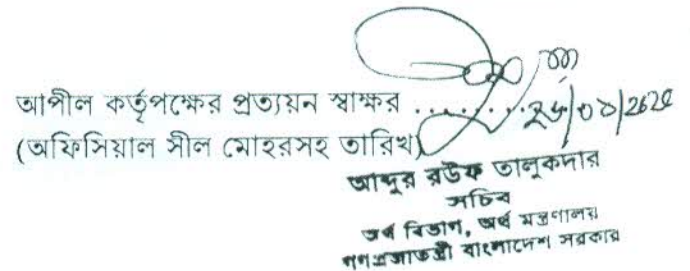 আপীল কর্তৃপক্ষের প্রত্যয়ন স্বাক্ষর ........
(অফিসিয়াল সীল মোহরসহ তারিখ)
আব্দুর রউফ তালুকদার
সচিব
অর্থ বিভাগ, অর্থ মন্ত্রণালয়
গণপ্রজাতন্ত্রী বাংলাদেশ সরকার